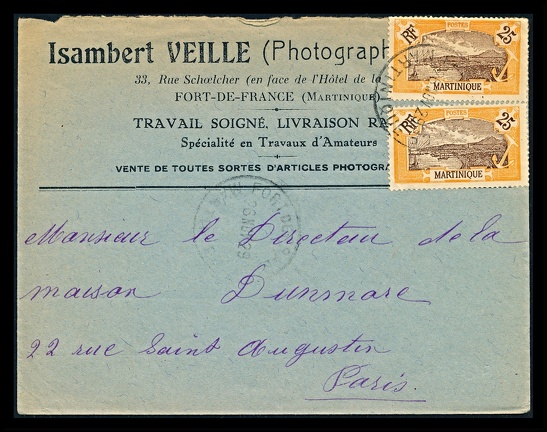 Isambert VEILLE (Photograph
33, Rue Schœlcher (en face de l'Hôtel de la
FORT-DE-FRANCE (MARTINIQUE)
TRAVAIL SOIGNÉ, LIVRAISON RA
Spécialité en Travaux d'Amateurs
VENTE DE TOUTES SORTES D'ARTICLES PHOTOGRA
POSTES
RF 25
MARTINIQUE
POSTES
RF 25
MARTINIQUE
MARTINIQUE
Monsieur le Directeur de la
maison Dunmore
22 rue Saint Augustin
Paris.